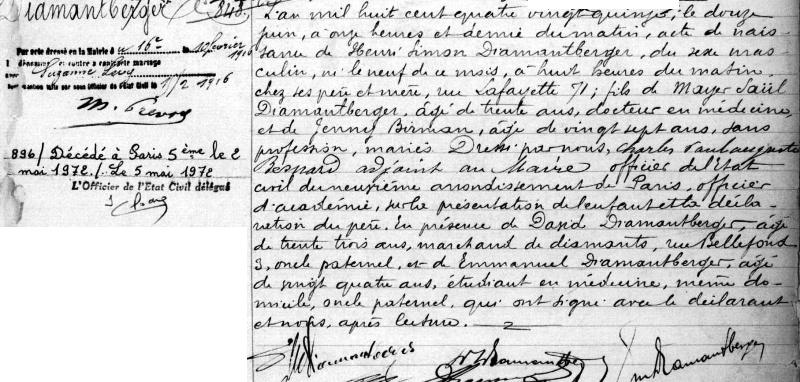 Diamantberger
843
Par acte dressé en la Mairie du 16e, 10 février
1916
a contracté mariage
avec Suzanne Levy
1/2 1916
896/ Décédé à Paris 5ème le 2
mai 1972./. Le 5 mai 1972
L'Officier de l'Etat Civil délégué
L'an mil huit cent quatre vingt quinze, le douze
juin, à onze heures et demie du matin, acte de nais-
sance de Henri Simon Diamantberger, du sexe mas-
culin, né le neuf de ce mois, à huit heures du matin,
chez ses père et mère, rue Lafayette 71; fils de Mayer Saül
Diamantberger, âgé de trente ans, docteur en médecine,
et de Jenny Birman, âgée de vingt sept ans, sans
profession, mariés. Dressé par nous, Charles Paul Auguste
Bernard adjoint au Maire officier de l'Etat
civil du neuvième arrondissement de Paris, officier
d'académie, sur la présentation de l'enfant et la décla-
ration du père. En présence de David Diamantberger, âgé
de trente trois ans, marchand de diamants, rue Bellefond
3, oncle paternel, et de Emmanuel Diamantberger, âgé
de vingt quatre ans, étudiant en médecine, même do-
micile, oncle paternel, qui ont signé avec le déclarant
et nous, après lecture.
Diamantberger